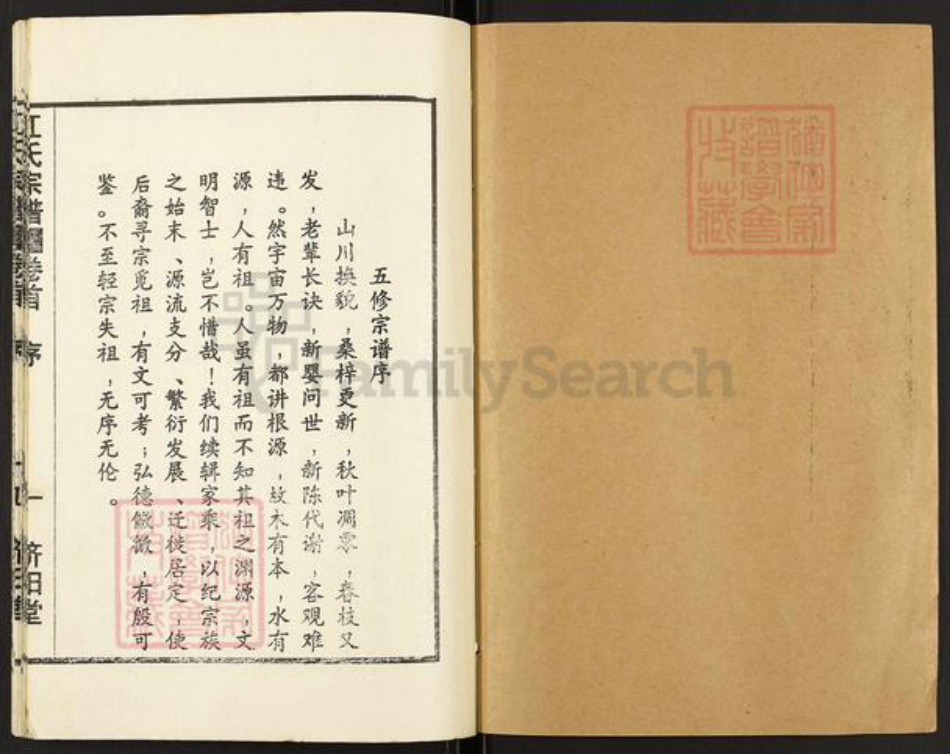 五修宗谱序
山川换貌，桑梓更新，秋叶凋零，春枝又
发，老辈长诀，新婴问世，新陈代谢，客观难
违。然宇宙万物，都讲根源，故木有本，水有
源，人有祖。人虽有祖而不知其祖之渊源，文
明智士，岂不惜哉！我们续辑家乘，以纪宗族
之始末、源流支分、繁衍发展、迁徙居定，使
后裔寻宗觅祖，有文可考；弘德儆微，有殷可
鉴。不至轻宗失祖，无序无伦。
江氏宗谱
卷首
序
一
济阳堂
FamilySearch